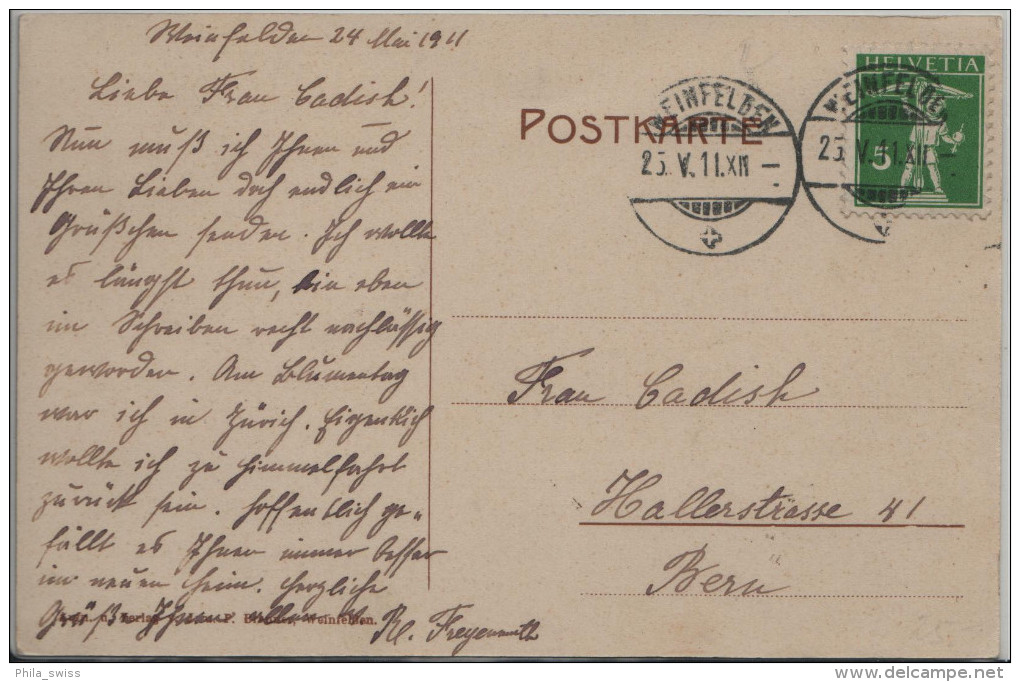 Weinfelden 24 Mai 1911
Liebe Frau Cadisch!
Nun muß ich Ihnen und
Ihren Lieben doch endlich ein
Grüßchen senden. Ich wollte
es längst thun, bin eben
im Schreiben recht nachlässig
geworden. Am Blumentag
war ich in Zürich. Eigentlich
wollte ich zu Himmelfahrt
zurück sein. Hoffentlich ge-
fällt es Ihnen immer besser
im neuen Heim. Herzliche
Grüße Ihnen allen
Freyenmuth
Weinfelden.
POSTKARTE
WEINFELDEN
25. V. 11. XII –
WEINFELDEN
25. V. 11. XII –
HELVETIA
5
Frau Cadisch
Hallerstrasse 41
Bern
Phila_swiss